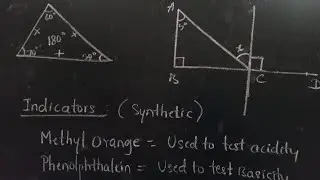 60°
180°
A
B
C
D
Indicators : (Synthetic)
Methyl Orange = Used to test acidity
Phenolphthalein = Used to test Basicity